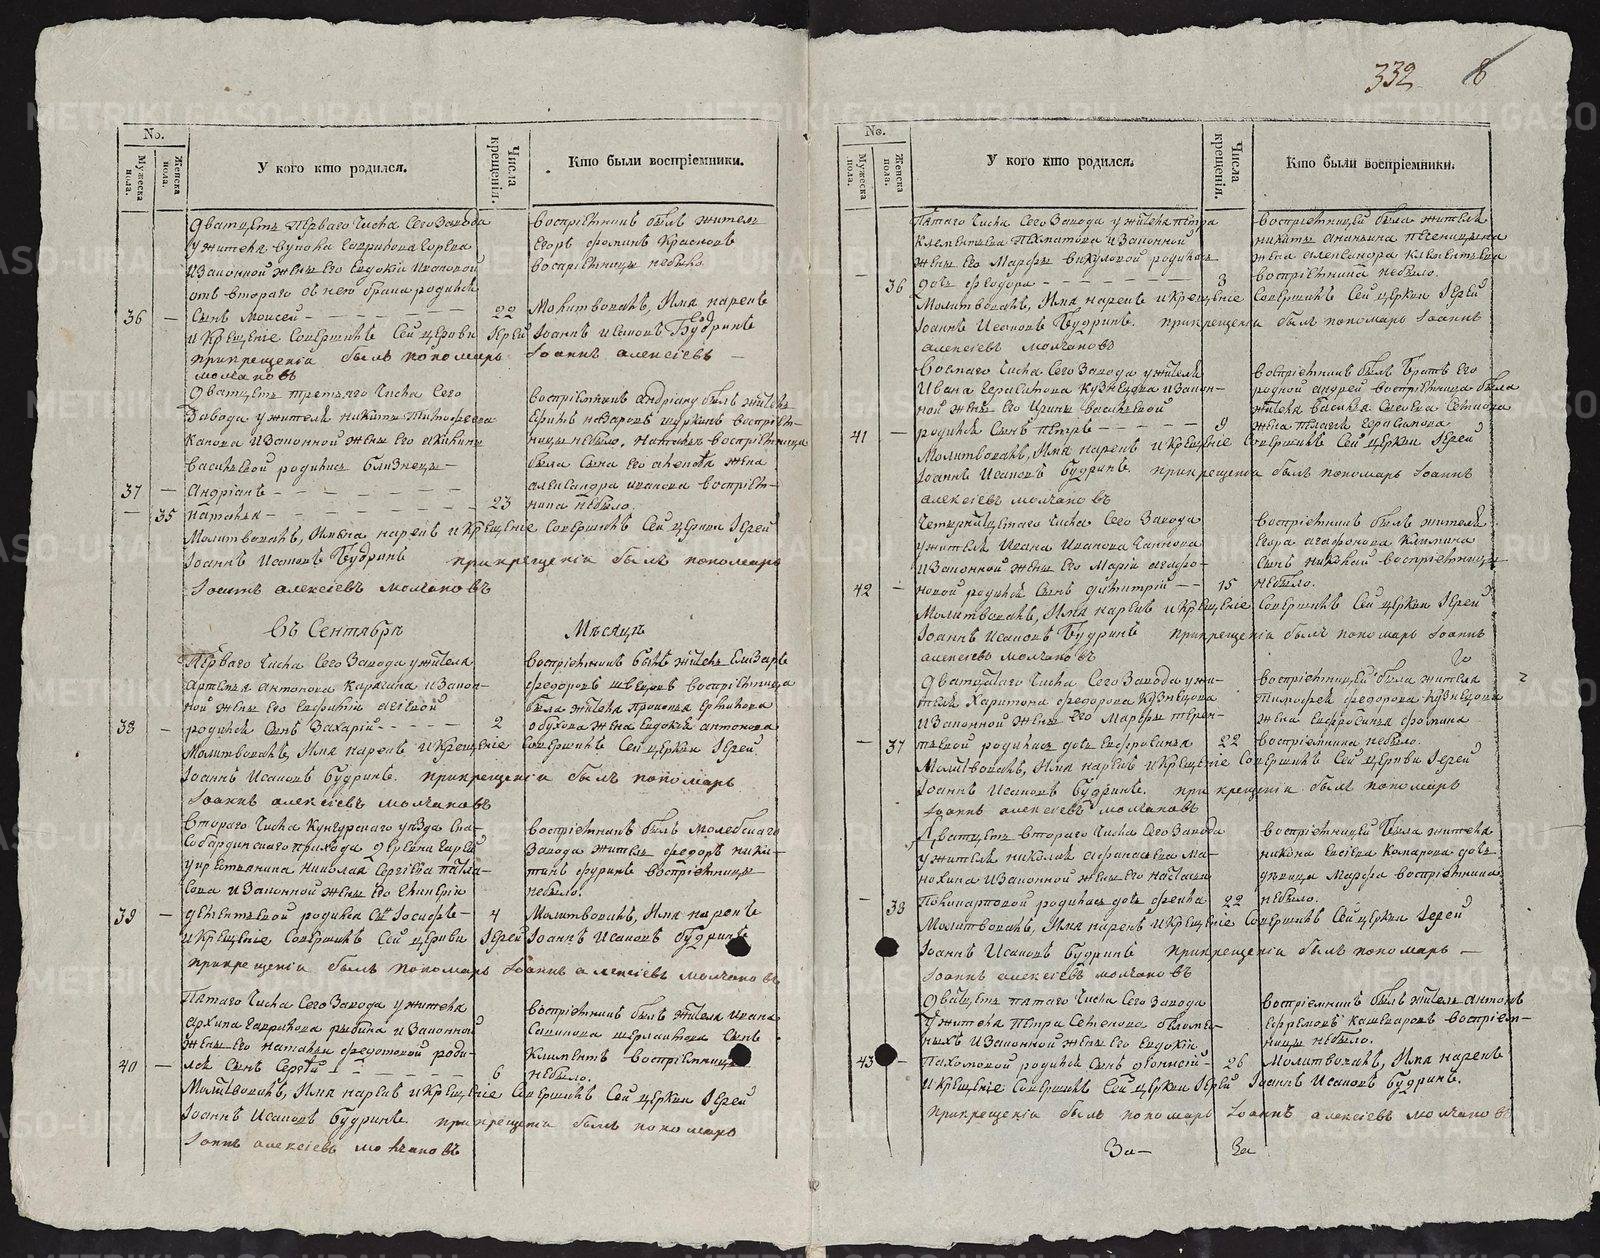 332 8
No.
Мужеска пола.
Женска пола.
У кого кто родился.
Числа крещенія.
Кто были воспріемники.
Дватцеть перваго числа сего завода
у жителя
и законной жены его Евдокіи Ивановой
отъ втораго съ нею брака родился
36 — сынъ Моисей — 22
воспріемникъ былъ житель
Егоръ Фоминъ Красновъ
воспріемницы небыло.
Молитвовалъ, Имя нареклъ
и крещеніе совершилъ сей церкви Іерей Іоаннъ Исаковъ Будринъ
при крещеніи былъ пономарь Іоаннъ Алексіевъ —
Молчановъ
Дватцеть третьяго числа сего
завода у жителя Никиты
и законной жены его Акилины
Васильевой родились близнецы —
37 — Андріанъ —
— 35 Наталья — 23
воспріемникъ Андріану былъ житель
воспріем-
ницы небыло. Натальи воспріемница
была сына его жена
Александра Иванова воспріем-
ника небыло.
Молитвовалъ, Имена нареклъ и крещеніе совершилъ сей церкви Іерей
Іоаннъ Исаковъ Будринъ при крещеніи былъ пономарь
Іоаннъ Алексіевъ Молчановъ
Въ Сентябрѣ Мѣсяцѣ
Перваго числа сего завода у жителя
Артемья Антонова и закон-
ной жены его
родился сынъ Захарій —
38 — 2
воспріемникъ былъ житель Елизаръ
Федоровъ Швецовъ воспріемница
была жителя
Обухова жена Евдокія Антонова
Молитвовалъ, Имя нареклъ и крещеніе совершилъ сей церкви Іерей
Іоаннъ Исаковъ Будринъ. при крещеніи былъ пономарь
Іоаннъ Алексіевъ Молчановъ
Втораго числа Кунгурскаго уѣзда Спа-
собардинскаго прихода деревни
у крестьянина Николая Сергіева
и законной жены его Гликеріи
39 — родился сынъ Іосифъ — 4
воспріемникъ былъ Молебскаго
завода житель Федоръ Ники-
тинъ воспріемницы
небыло.
Молитвовалъ, Имя нареклъ
и крещеніе совершилъ сей церкви Іерей Іоаннъ Исаковъ Будринъ
при крещеніи былъ пономарь Іоаннъ Алексіевъ Молчановъ
Пятаго числа сего завода у жителя
Архипа Гаврилова Рыбина и законной
жены его Натальи Федотовой роди-
40 — лся сынъ Сергій — 6
воспріемникъ былъ жителя Ивана
сынъ
Климентъ воспріемницы
небыло.
Молитвовалъ, Имя нареклъ и крещеніе совершилъ сей церкви Іерей
Іоаннъ Исаковъ Будринъ. при крещеніи былъ пономарь
Іоаннъ Алексіевъ Молчановъ
No.
Мужеска пола.
Женска пола.
У кого кто родился.
Числа крещенія.
Кто были воспріемники.
Пятаго числа сего завода у жителя Петра
Климентьева Пахматова и законной
жены его Марфы Викуловой родилась
— 36 дочь Феодора — 3
воспріемницей была жителя
Никиты Ананьина
жена Александра Климентьева
воспріемника небыло.
Молитвовалъ, Имя нареклъ и крещеніе совершилъ сей церкви Іерей
Іоаннъ Исаковъ Будринъ. при крещеніи былъ пономарь Іоаннъ
Алексіевъ Молчановъ
Восмаго числа сего завода у жителя
Ивана Герасимова Кузнецова и закон-
ной жены его Ирины Васильевой
41 — родился сынъ Петръ — 9
воспріемникъ былъ братъ его
родной Андрей воспріемница была
жителя Василья
жена Герасимова
Молитвовалъ, Имя нареклъ и крещеніе совершилъ сей церкви Іерей
Іоаннъ Исаковъ Будринъ. при крещеніи былъ пономарь Іоаннъ
Алексіевъ Молчановъ
Четырнатцетаго числа сего завода
у жителя Ивана Иванова
и законной жены его Маріи Агафо-
42 — новой родился сынъ Димитрій — 15
воспріемникъ былъ жителя
Егора Агафонова
сынъ Николай воспріемницы
небыло.
Молитвовалъ, Имя нареклъ и крещеніе совершилъ сей церкви Іерей
Іоаннъ Исаковъ Будринъ при крещеніи былъ пономарь Іоаннъ
Алексіевъ Молчановъ
Дватцатаго числа сего завода у жи-
теля Харитона Федорова Кузнецова
и законной жены его Марфы Терен-
— 37 тьевой родилась дочь Евфросинья 22
воспріемницей была жителя
Тимофея Федорова Кузнецова
жена Евфросинья Фомина
воспріемника небыло.
Молитвовалъ, Имя нареклъ и крещеніе совершилъ сей церкви Іерей
Іоаннъ Исаковъ Будринъ. при крещеніи былъ пономарь
Іоаннъ Алексіевъ Молчановъ
Двatцеть втораго числа сего завода
у жителя Николая Афанасьева Ма-
нохина и законной жены его Натальи
— 38 родилась дочь Фекла 22
воспріемницей была жителя
Никона Евсіева Комарова дочь
дѣвица Марфа воспріемника
небыло.
Молитвовалъ, Имя нареклъ и крещеніе совершилъ сей церкви Іерей
Іоаннъ Исаковъ Будринъ при крещеніи былъ пономарь —
Іоаннъ Алексіевъ Молчановъ
Дватцеть пятаго числа сего завода
у жителя Петра Семенова
и законной жены его Евдокіи
43 — Пахомовой родился сынъ Діонисій — 26
воспріемникъ былъ житель Антонъ
Ефремовъ Кашеваровъ воспріем-
ницы небыло.
Молитвовалъ, Имя нареклъ
и крещеніе совершилъ сей церкви Іерей Іоаннъ Исаковъ Будринъ.
при крещеніи былъ пономарь Іоаннъ Алексіевъ Молчановъ
За — За
METRIKI.GASO-URAL.RU